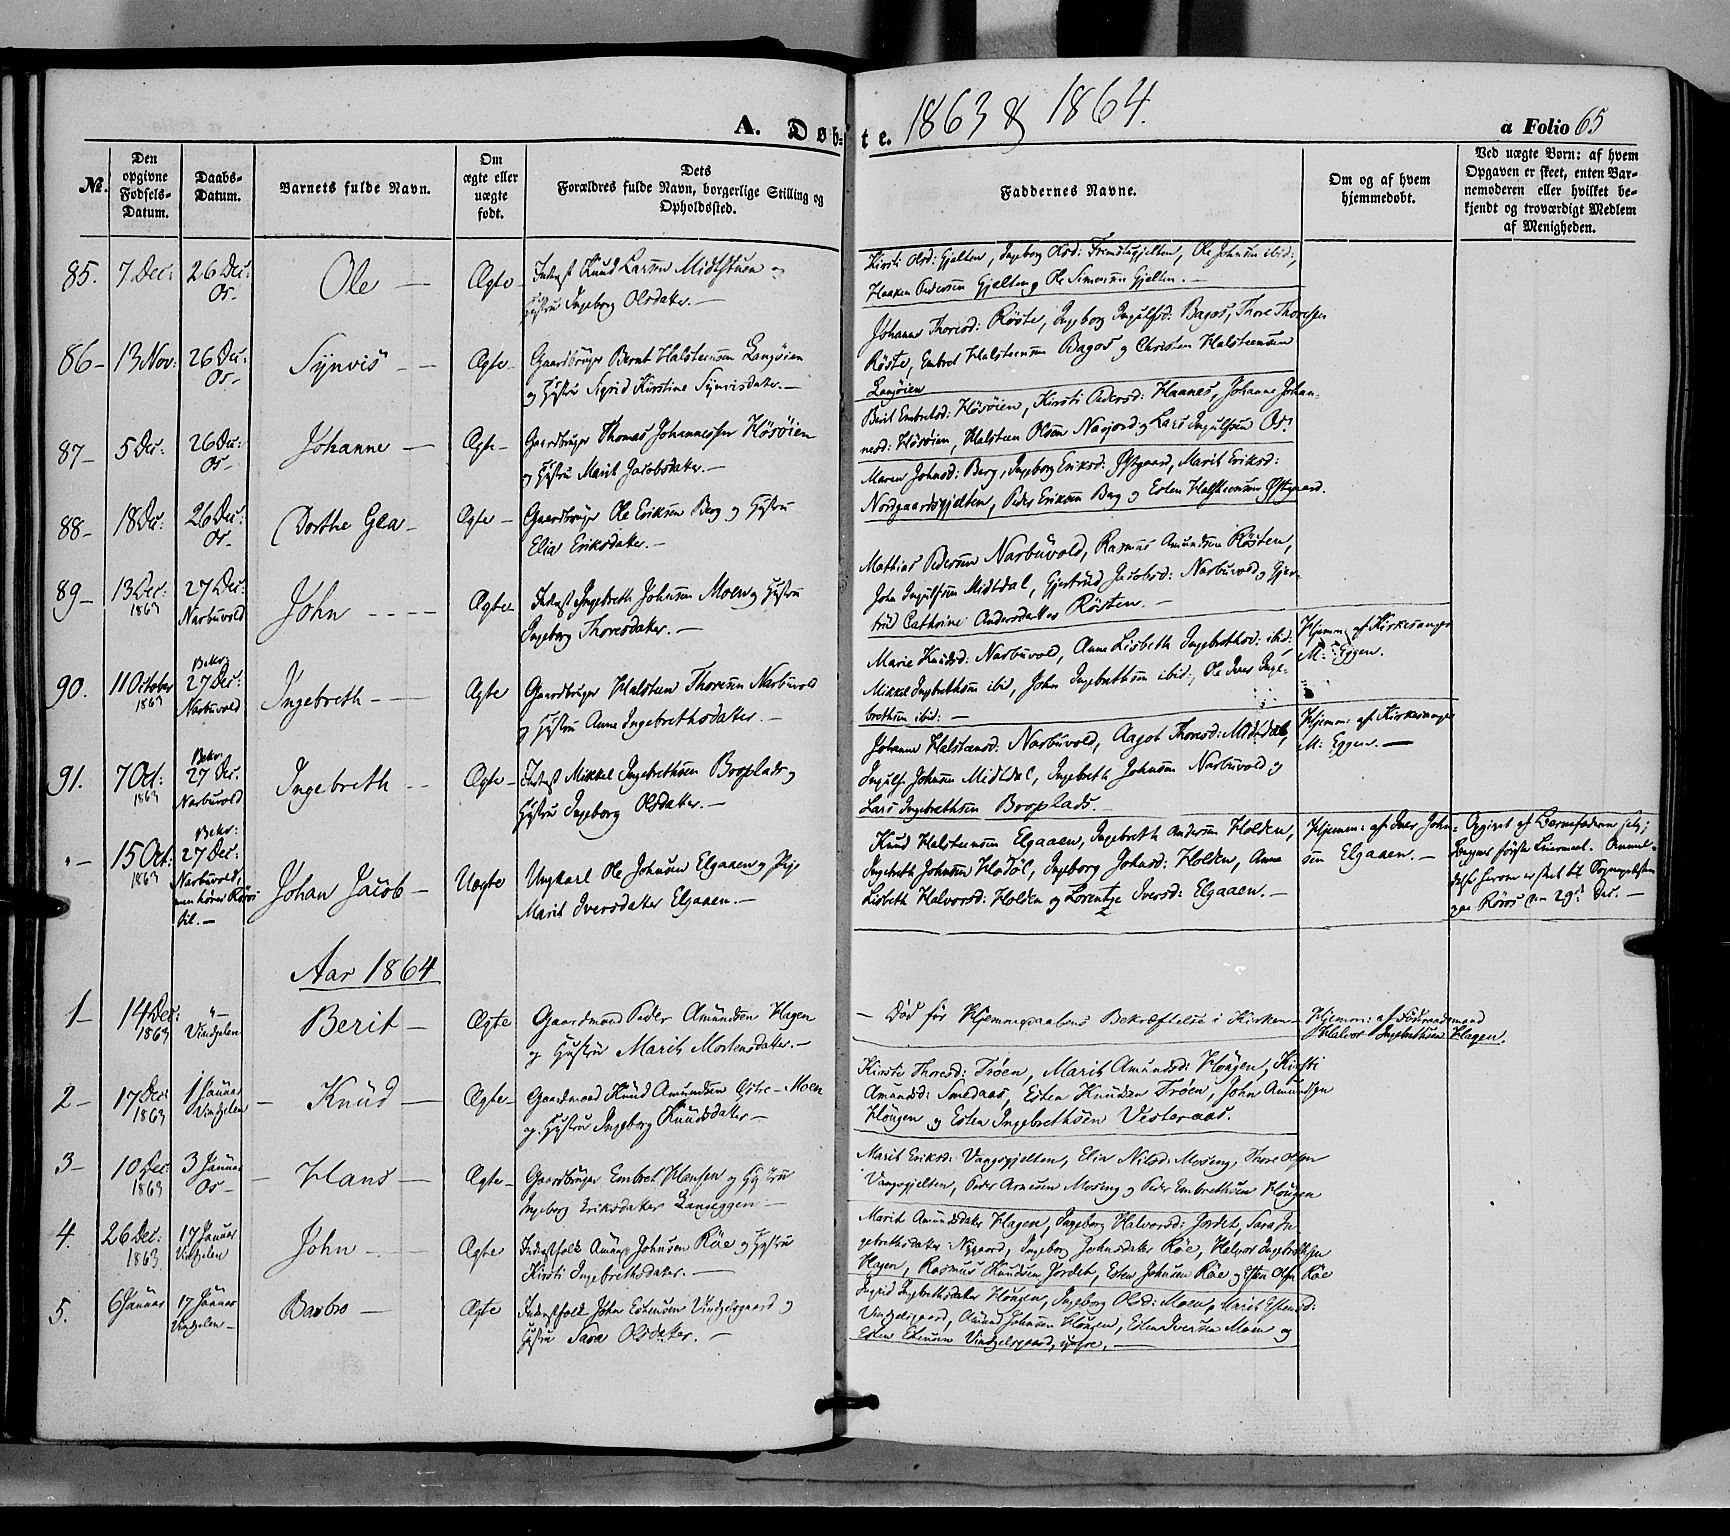 A. Døb-
te. 1863 & 1864.
a Folio 65
No.
Den opgivne Fødsels-Datum.
Daabs-Datum.
Barnets fulde Navn.
Om ægte eller uægte født.
Dets Forældres fulde Navn, borgerlige Stilling og Opholdssted.
Faddernes Navne.
Om og af hvem hjemmedøbt.
Ved uægte Børn: af hvem Opgaven er skeet, enten Bar-nemoderen eller hvilket be-kjendt og troværdigt Medlem af Menigheden.
85. 7 Dec: 26 Dec: Os- Ole — Ægte-
Inderst Knud Larsen Midtstuen og
Hustru Ingeborg Olsdatter. —
Kirsti Olsd: Gjelten, Ingeborg Olsd: Fremstigjelten, Ole Johnsen ibid:,
Haaken Pedersen Gjelten og Ole Simensen Gjelten. —
86- 13 Nov: 26 Dec: Os- Synvis — Ægte-
Gaardbruger Bernt Halsteensen Langøien
og Hustru Sigrid Kirstine Synvisdatter. —
Johanne Thoresd: Røste, Ingeborg Ingulfsd: Bagos, Thore Thoresen
Røste, Embret Halsteensen Bagos og Christen Halsteensen
Langøien
87- 5 Dec: 26 Dec: Os- Johanne — Ægte-
Gaardbruger Thomas Johannessen Hösöien
og Hustru Marit Jacobsdatter. —
Berit Embretsd: Hösöien, Kirsti Pedersd: Haanes, Johanne Johan-
nesd: Hösöien, Halsteen Olsen Nasjord og Lars Ingulfsen Os.
88- 18 Dec: 26 Dec: Os- Dorthe Gea- Ægte-
Gaardbruger Ole Eriksen Berg og Hustru
Eliæ Eriksdatter. —
Maren Johnsd: Berg, Ingeborg Eriksd: Østgaard, Marit Eriksd:
Nordgaardsgjelten, Peder Eriksen Berg og Esten Halsteensen Østgaard.
89- 13 Dec: 1863 27 Dec: Narbuvold John - - - Ægte-
Inderst Ingebreth Johnsen Moen og Hustru
Ingeborg Thoresdatter. —
Mathias Pedersen Narbuvold, Rasmus Amundsen Røsten,
John Ingulfsen Midtdal, Gjertrud Jacobsd: Narbuvold og Gjer-
trud Cathrine Andersdatter Røsten. —
90. 11 October 1863 Bekr: 27 Dec: Narbuvold Ingebreth — Ægte
Gaardbruger Halsteen Thoresen Narbuvold
og Hustru Anne Ingebrethsdatter. —
Marie Knudsd: Narbuvold, Anne Lisbeth Ingebrethsd: ibid:
Mikkel Ingebrethsen ibid, John Ingebrethsen ibid:, Ole Iver Inge-
brethsen ibid: —
Hjemm: af Kirkesanger
M: Eggen.
91. 7 Oct: 1863 Bekr: 27 Dec. Narbuvold Ingebreth - - Ægte-
Inderst Mikkel Ingebrethsen Booplads og
Hustru Ingeborg Olsdatter. —
Johanne Halsteensd: Narbuvold, Aagot Thoresd: Midtdal,
Ingulf Johnsen Midtdal, Ingebreth Johnsen Narbuvold og
Lars Ingebrethsen Booplads. —
Hjemm: af Kirkesanger
M: Eggen. —
"- 15 Oct: 1863 Bekr: 27 Dec: Narbuvold, men hører Røros til. — Johan Jacob — Uægte
Ungkarl Ole Johnsen Elgaaen og Pige
Marit Iversdatter Elgaaen. —
Knud Halsteensen Elgaaen, Ingebreth Andersen Holden,
Ingebreth Johnsen Hådöl, Ingeborg Johnsd: Holden, Anne
Lisbeth Halvorsd: Holden og Lorentze Iversd: Elgaaen. —
Hjemm: af Iver John-
sen Elgaaen. —
Opgivet af Barnefaderen selv;
begges første Leiermaal. Anmel-
delse herom er skeet til Sognepræsten
paa Röros den 29d Dec. —
Aar 1864
1- 14 Dec: 1863 "- Vindgelen Berit — Ægte
Gaardmand Peder Amundsen Hagen
og Hustru Marit Mortensdatter. —
— Död för Hjemmedaabens Bekræftelse i Kirken —
Hjemm: af Föderaadsmand
Halvor Ingebrethsen Hagen.
2- 17 Dec: 1863 1 Januar Vindgelen — Knud — Ægte-
Gaardmand Knud Amundsen Östre-Moen
og Hustru Ingeborg Knudsdatter —
Kirsti Thoresd: Tröen, Marit Amundsd: Hougen, Kirsti
Amundsd: Smedaas, Esten Knudsen Tröen, John Amundsen
Hougen og Esten Ingebrethsen Vesteraas.
3- 10 Dec: 1863 3 Januar Os- — Hans — Ægte-
Gaardbruger Embret Hansen og Hustru
Ingeborg Eriksdatter Langeggen —
Marit Eriksd: Vangsgjelten, Eliæ Nilsd: Moseng, Thore Olsen
Vangsgjelten, Peder Arnesen Moseng og Peder Embrethsen Hougen
4. 26 Dec: 1863 17 Januar Vindgelen John — Ægte
Inderstfolk Amund Johnsen Röe og Hustru
Kirsti Ingebrethsdatter. —
Marit Amundsdatter Hagen, Ingeborg Halvorsd: Jordet, Sara In-
gebrethsdatter Nygaard, Ingeborg Johnsdatter Röe, Halvor Ingebrethsen
Hagen, Rasmus Knudsen Jordet, Esten Johnsen Röe og Esten Olsen Röe
5. 6 Januar 17 Januar Vindgelen — Barbro — Ægte
Inderstfolk John Estensen Vindgelsgaard og
Hustru Sara Olsdatter. —
Ingrid Ingebrethsdatter Hougen, Ingeborg Olsd: Moen, Marit Estensd:
Vindgelsgaard, Amund Johnsen Hougen, Esten Iversen Moen og
Esten Estensen Vindgelsgaard,